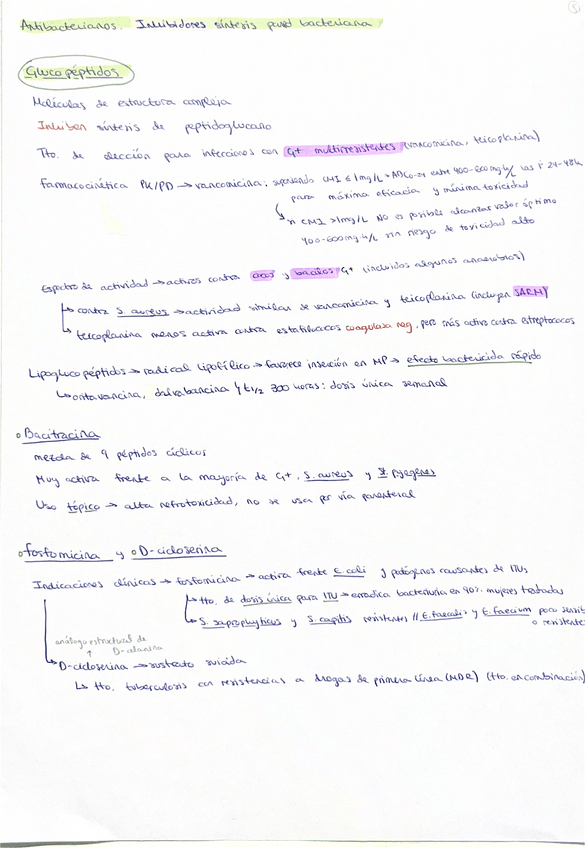 5
Antibacterianos. Inhibidores síntesis pared bacteriana
Glucopéptidos
Moléculas de estructura compleja
Inhiben síntesis de peptidoglucano
Tto. de elección para infecciones con G+ multirresistentes (vancomicina, teicoplanina)
Farmacocinética PK/PD → vancomicina: suponiendo CMI ≤ 1mg/L → entre 400-600mg·h/L las 1as 24-48h
para máxima eficacia y mínima toxicidad
si CMI >1mg/L NO es posible alcanzar valor óptimo
400-600mg·h/L sin riesgo de toxicidad alto
Espectro de actividad → activos contra cocos y bacilos G+ (incluidos algunos anaerobios)
↳ contra S. aureus → actividad similar de vancomicina y teicoplanina (incluyen SARM)
↳ teicoplanina menos activa contra estafilococos coagulasa neg, pero más activa contra estreptococos
Lipoglucopéptidos → radical lipofílico → favorece inserción en MP → efecto bactericida rápido
↳ oritavancina, dalvabancina t1/2 300 horas: dosis única semanal
○ Bacitracina
mezcla de 9 péptidos cíclicos
Muy activa frente a la mayoría de G+, S. aureus y St. pyogenes
Uso tópico → alta nefrotoxicidad, no se usa por vía parenteral
○ fosfomicina y ○ D-cicloserina
Indicaciones clínicas → fosfomicina → activa frente E. coli y patógenos causantes de ITUs
↳ tto. de dosis única para ITU → erradica bacteriuria en 90% mujeres tratadas
↳ S. saprophyticus y S. capitis resistentes // E. faecalis y E. faecium poco sensib
o resistentes
análogo estructural de
↑ D-alanina
↳ D-cicloserina → sustrato suicida
↳ tto. tuberculosis con resistencias a drogas de primera línea (MDR) (tto. en combinación)